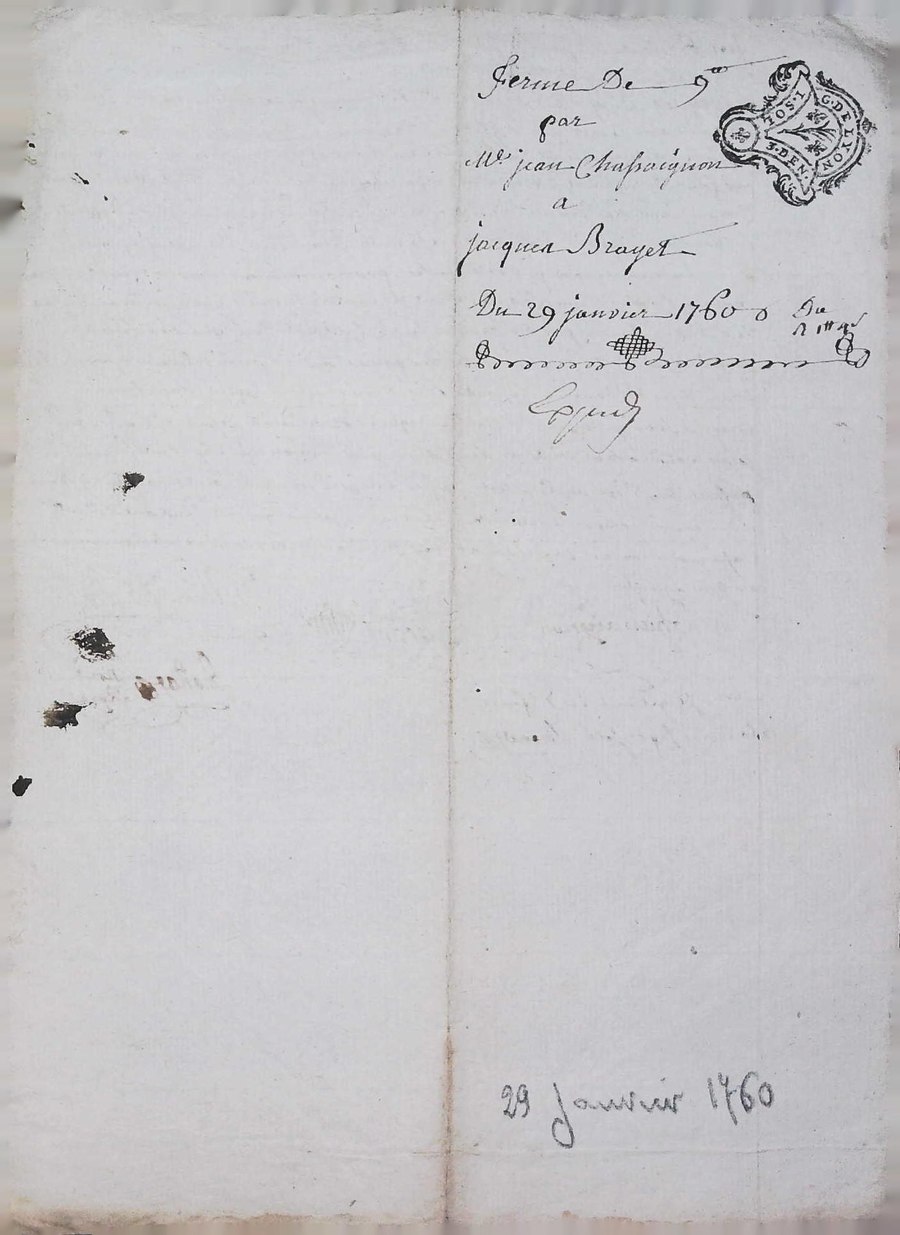 Ferme De 9
par
Me jean Chassaignon
a
jacques Brayet
Du 29 janvier 1760
G. DE LYON
IOS. I
3. DEN.
29 Janvier 1760